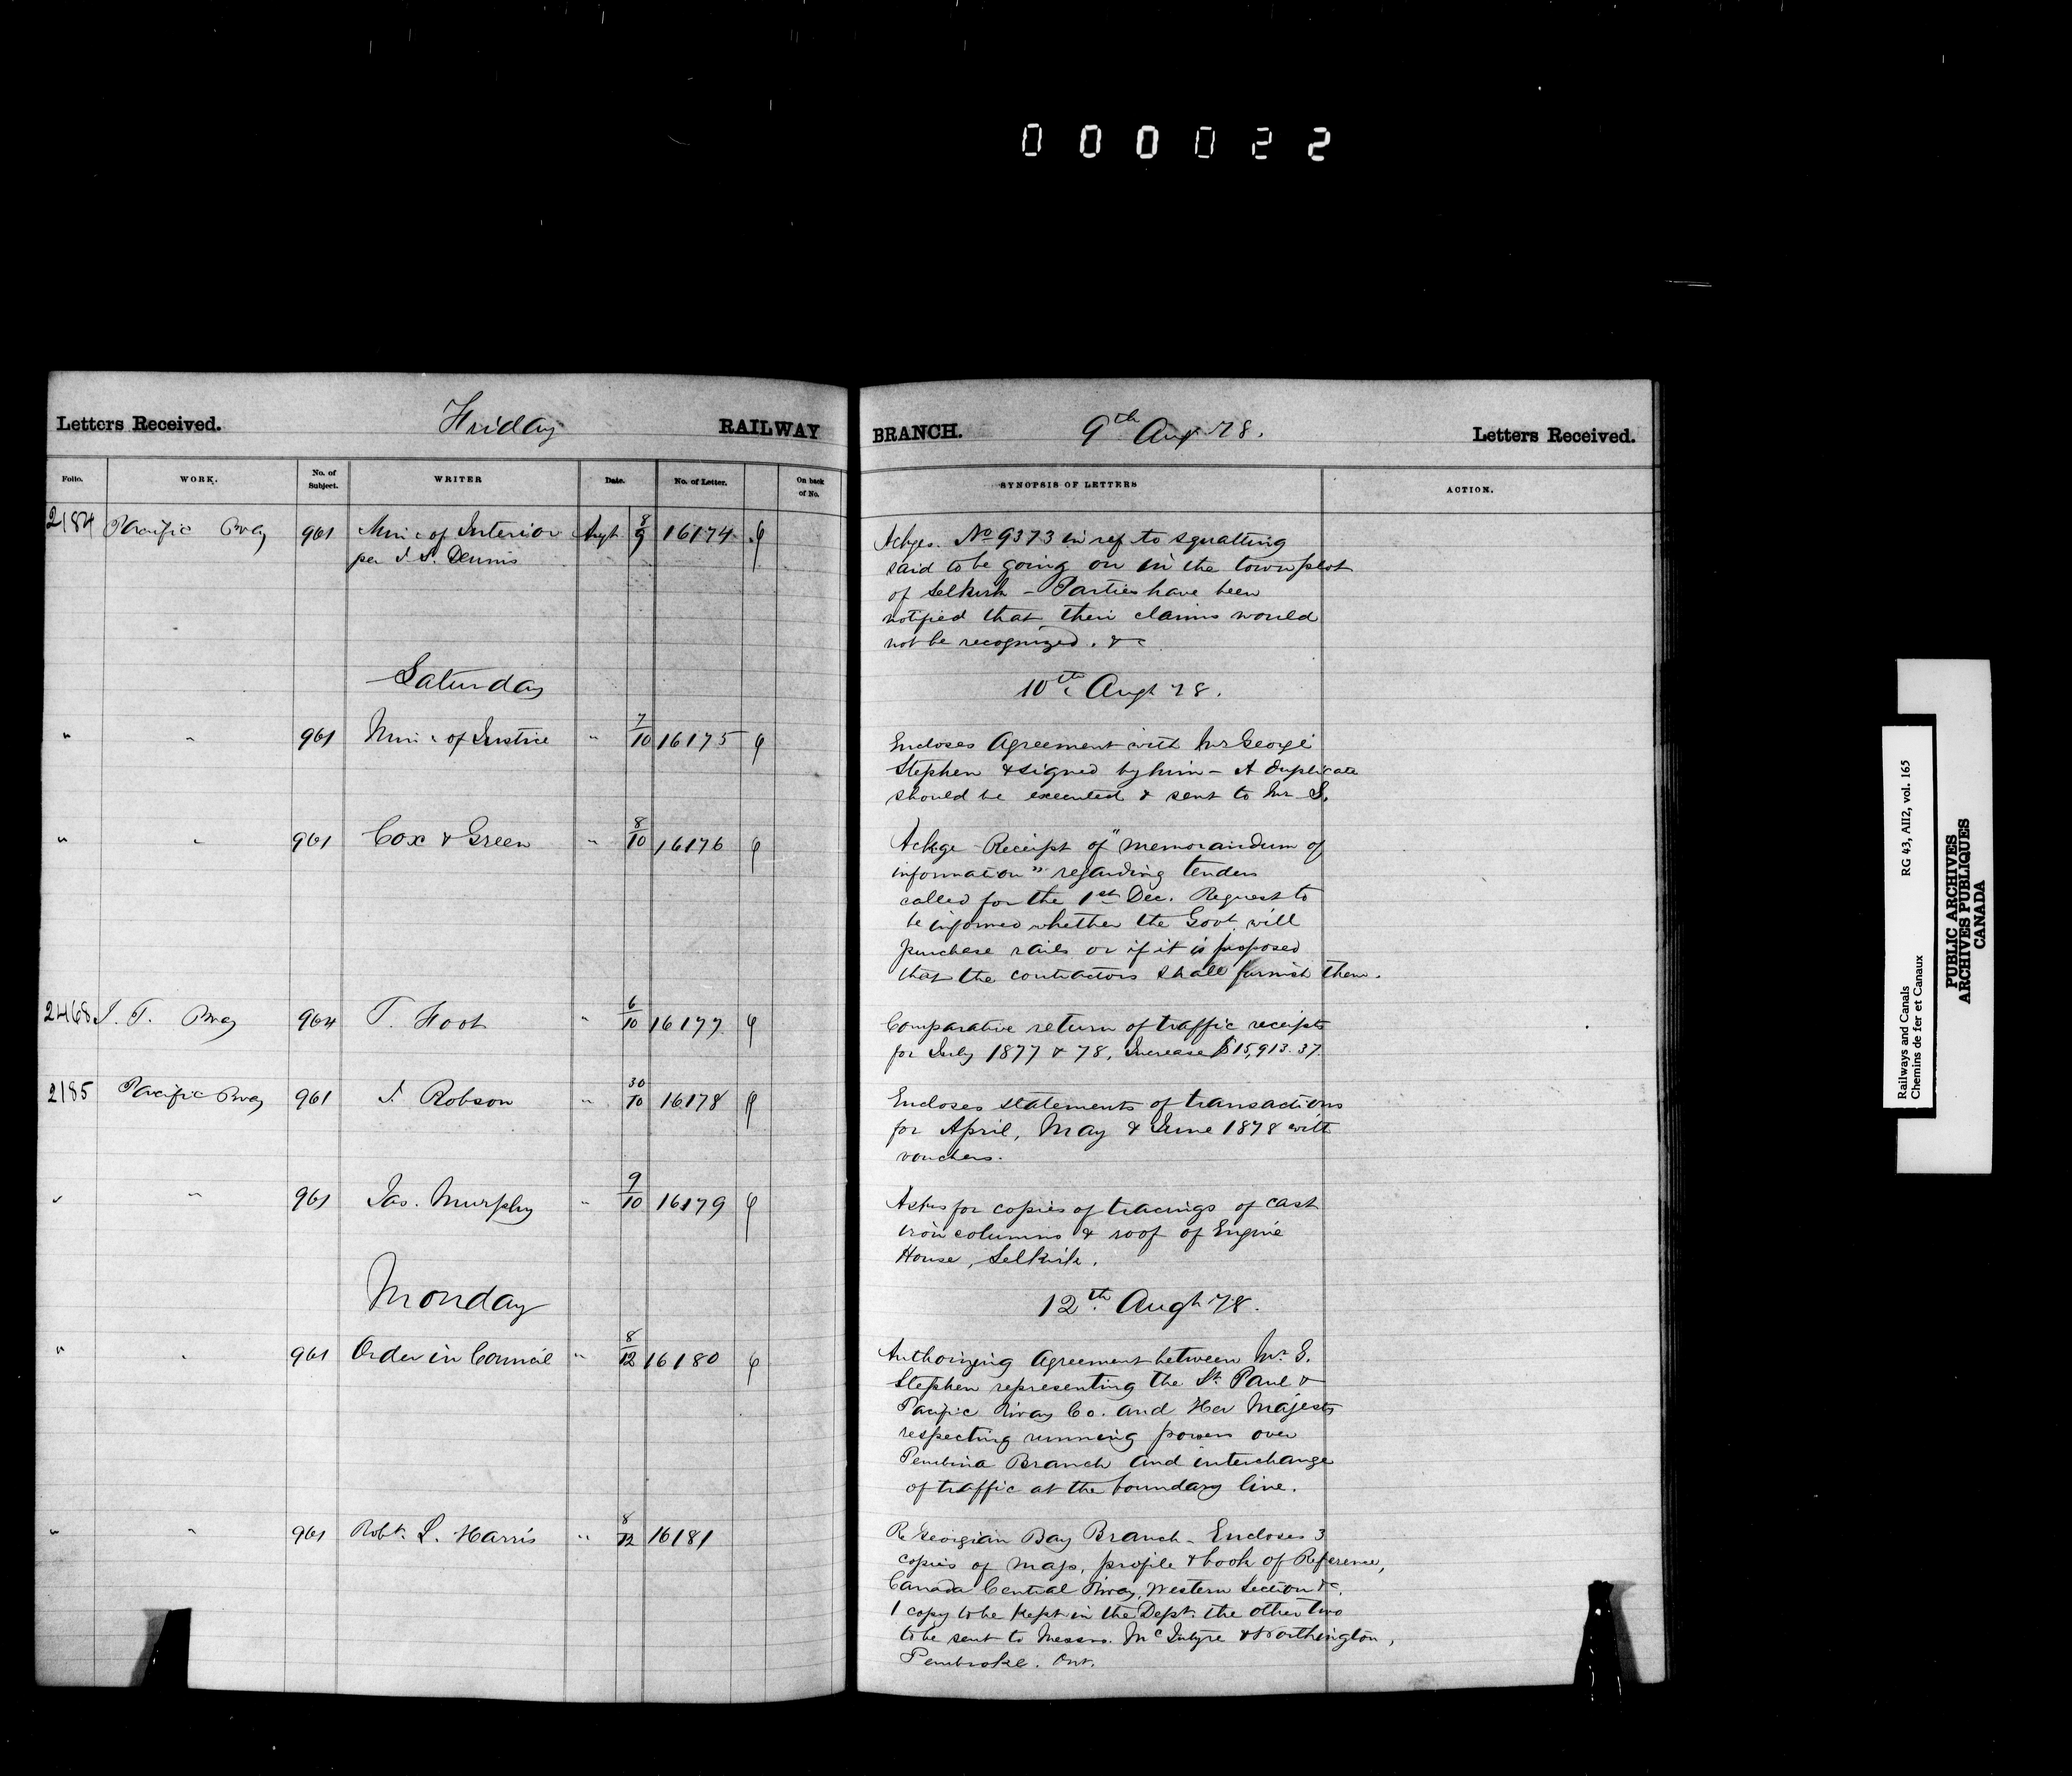 000022
Letters Received. Friday RAILWAY BRANCH. 9th Augt 78. Letters Received.
Folio. WORK. No. of Subject. WRITER Date. No. of Letter. On back of No. SYNOPSIS OF LETTERS ACTION.
2184 Pacific Rway 961 Minr of Interior Augt 8/9 16174
per J. S. Dennis
Ackges. No 9373 in ref to squatting
said to be going on in the town plot
of Selkirk - Parties have been
notified that their claims would
not be recognized. &c
Saturday 10th Augt 78.
" " 961 Minr of Justice " 7/10 16175
Encloses Agreement with Mr George
Stephen & signed by him - A duplicate
should be executed & sent to Mr S.
" " 961 Cox & Green " 8/10 16176
Ackge Receipt of "memorandum of
information" regarding tenders
called for the 1st Dec. Request to
be informed whether the Govt. will
purchase rails or if it is proposed
that the contractors shall furnish them.
2468 I. T. Rway 964 T. Foot " 6/10 16177
Comparative return of traffic receipts
for July 1877 & 78. Increase $15,913.37.
2185 Pacific Rway 961 J. Robson " 30/10 16178
Encloses statements of transactions
for April, May & June 1878 with
vouchers.
" " 961 Jas. Murphy " 9/10 16179
Asks for copies of tracings of cast
iron columns & roof of Engine
House, Selkirk.
Monday 12th Augt 78.
" " 961 Order in Council " 8/12 16180
Authorizing Agreement between Mr G.
Stephen representing the St. Paul &
Pacific Rway Co. and Her Majesty
respecting running powers over
Pembina Branch and interchange
of traffic at the boundary line.
" " 961 Robt. L. Harris " 8/12 16181
Re Georgian Bay Branch - Encloses 3
copies of map, profile & book of Reference,
Canada Central Rway, Western Section &c.
1 copy to be kept in the Dept. the other two
to be sent to Messrs. McIntyre & Worthington,
Pembroke. Ont.
Railways and Canals RG 43, AII2, vol. 165
Chemins de fer et Canaux
PUBLIC ARCHIVES
ARCHIVES PUBLIQUES
CANADA